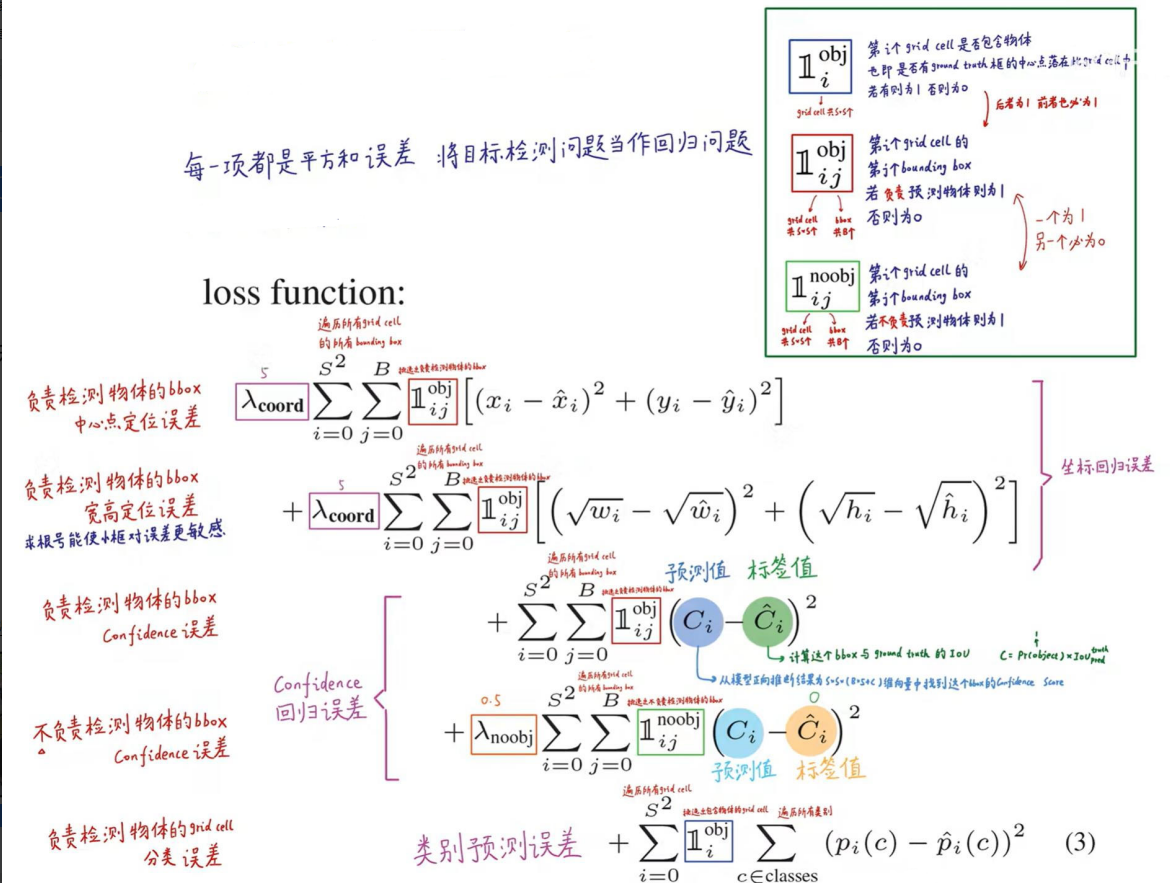 𝟙 obj i
第i个grid cell是否包含物体
也即是否有ground truth框的中心点落在此grid cell中
若有则为1 否则为0
grid cell共S×S个
后者为1 前者也必为1
每一项都是平方和误差 将目标检测问题当作回归问题
𝟙 obj ij
第i个grid cell的
第j个bounding box
若负责预测物体则为1
否则为0
grid cell
共S×S个
bbox
共B个
一个为1
另一个必为0
𝟙 noobj ij
第i个grid cell的
第j个bounding box
若不负责预测物体则为1
否则为0
grid cell
共S×S个
bbox
共B个
loss function:
遍历所有grid cell
的所有bounding box
5
挑选出负责检测物体的bbox
负责检测物体的bbox
中心点定位误差
λcoord ∑_{i=0}^{S²} ∑_{j=0}^{B} 𝟙_{ij}^{obj} [(x_i − x̂_i)² + (y_i − ŷ_i)²]
遍历所有grid cell
的所有bounding box
5
挑选出负责检测物体的bbox
坐标回归误差
负责检测物体的bbox
宽高定位误差
求根号能使小框对误差更敏感
+ λcoord ∑_{i=0}^{S²} ∑_{j=0}^{B} 𝟙_{ij}^{obj} [(√w_i − √ŵ_i)² + (√h_i − √ĥ_i)²]
遍历所有grid cell
的所有bounding box
预测值 标签值
挑选出负责检测物体的bbox
负责检测物体的bbox
Confidence误差
+ ∑_{i=0}^{S²} ∑_{j=0}^{B} 𝟙_{ij}^{obj} (C_i − Ĉ_i)²
计算这个bbox与ground truth的IOU
C = Pr(object) × IOU truth pred
从模型正向推断结果为S×S×(B×5+C)维向量中找到这个bbox的Confidence Score
Confidence
回归误差
遍历所有grid cell
的所有bounding box
0.5
挑选出不负责检测物体的bbox
0
不负责检测物体的bbox
Confidence误差
+ λnoobj ∑_{i=0}^{S²} ∑_{j=0}^{B} 𝟙_{ij}^{noobj} (C_i − Ĉ_i)²
预测值 标签值
遍历所有grid cell
挑选出包含物体的grid cell
遍历所有类别
负责检测物体的grid cell
分类误差
类别预测误差
+ ∑_{i=0}^{S²} 𝟙_{i}^{obj} ∑_{c∈classes} (p_i(c) − p̂_i(c))² (3)